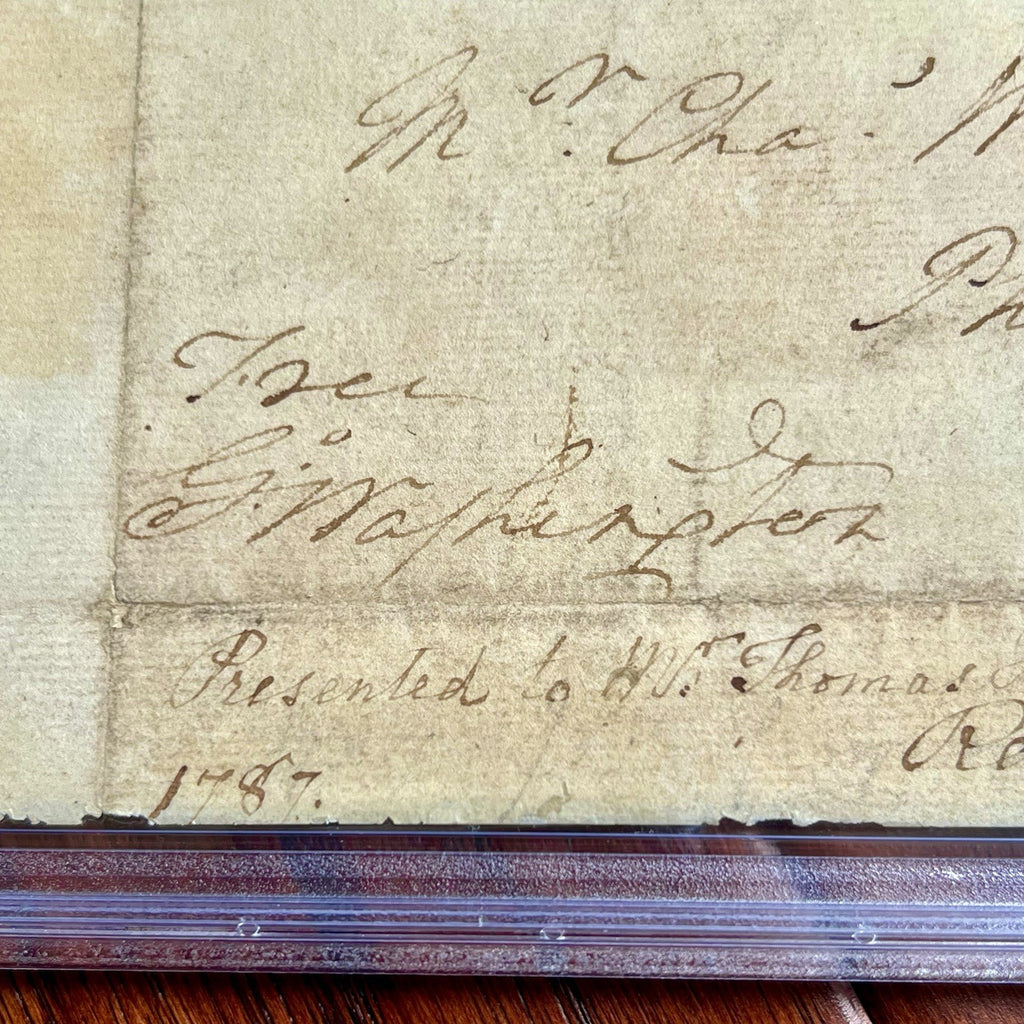 Mr. Cha.s W
Ph
Free
Go. Washington
Presented to Wm. Thomas
Ro
1787.